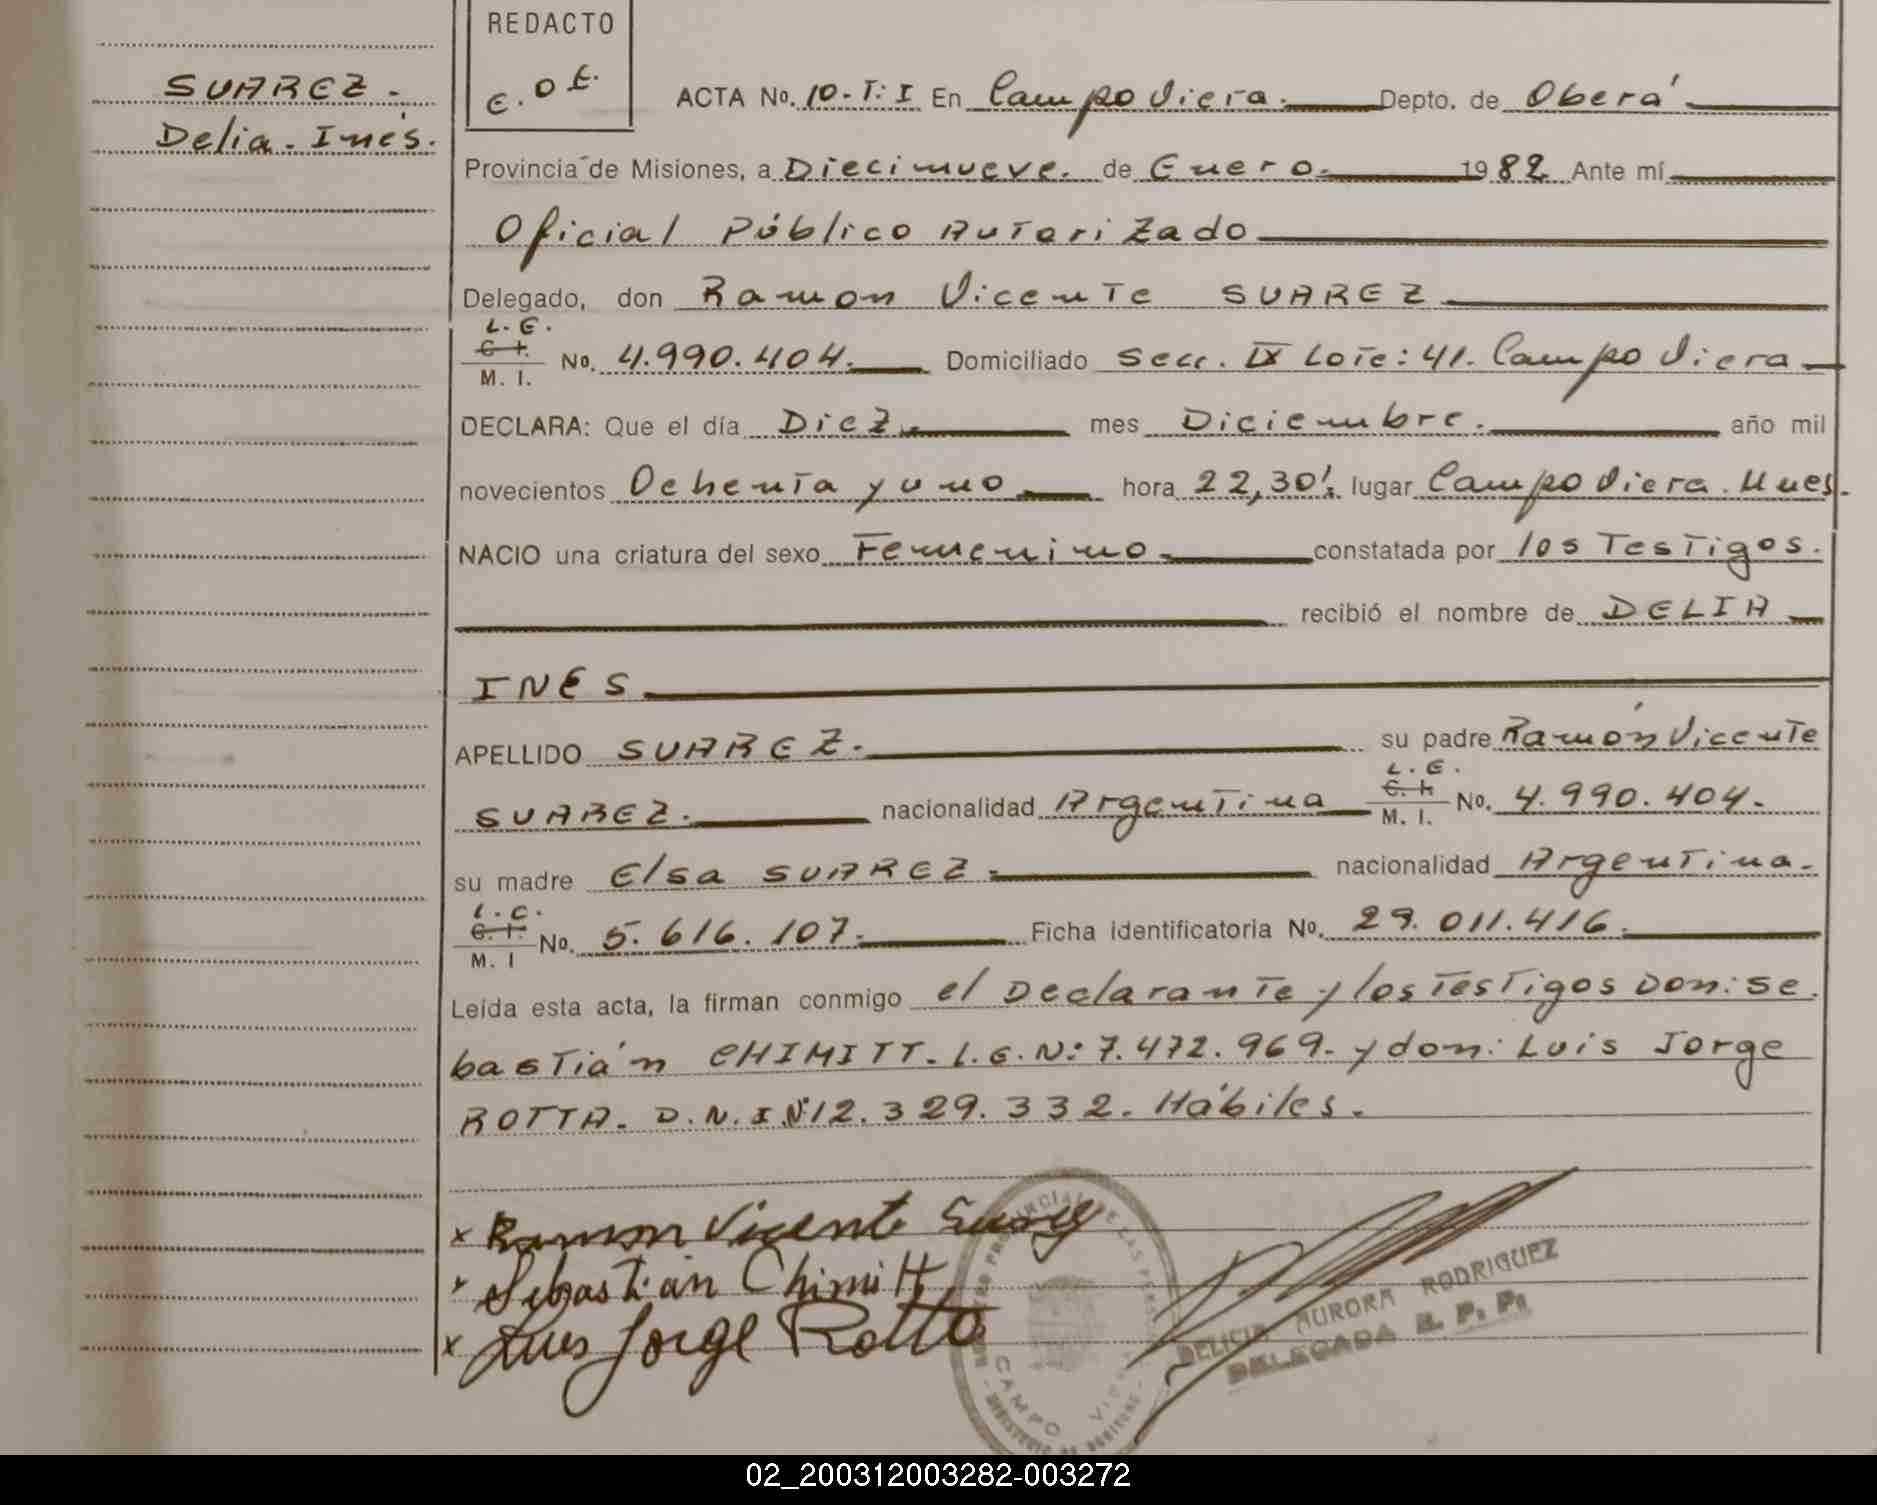 REDACTO
E. O E.
SUAREZ.
Delia. Inés.
ACTA No. 10-T: I En Campo Viera. Depto. de Oberá
Provincia de Misiones, a Diecinueve. de Enero. 1982 Ante mí
Oficial Público Autorizado
Delegado, don Ramon Vicente SUAREZ
L. E. C. I. M. I. No. 4.990.404. Domiciliado Secc. IX Lote: 41. Campo Viera
DECLARA: Que el día Diez. mes Diciembre. año mil
novecientos Ochenta y uno hora 22,30'. lugar Campo Viera. Mnes.
NACIO una criatura del sexo Femenino constatada por los Testigos.
recibió el nombre de DELIA
INES
APELLIDO SUAREZ. su padre Ramón Vicente
SUAREZ. nacionalidad Argentina L. E. C. I. M. I. No. 4.990.404.
su madre Elsa SUAREZ. nacionalidad Argentina.
L. C. C. I. M. I No. 5.616.107. Ficha identificatoria No. 29.011.416.
Leída esta acta, la firman conmigo el Declarante y los Testigos Don: Se
bastián CHIMITT. L.E.Nº 7.472.969. y don: Luis Jorge
ROTTA. D.N.I.Nº 12.329.332. Hábiles.
x Ramon Vicente Suarez
x Sebastián Chimitt
x Luis Jorge Rotta
DELICIA AURORA RODRIGUEZ
DELEGADA R. P. P.
CAMPO VIERA
02_200312003282-003272